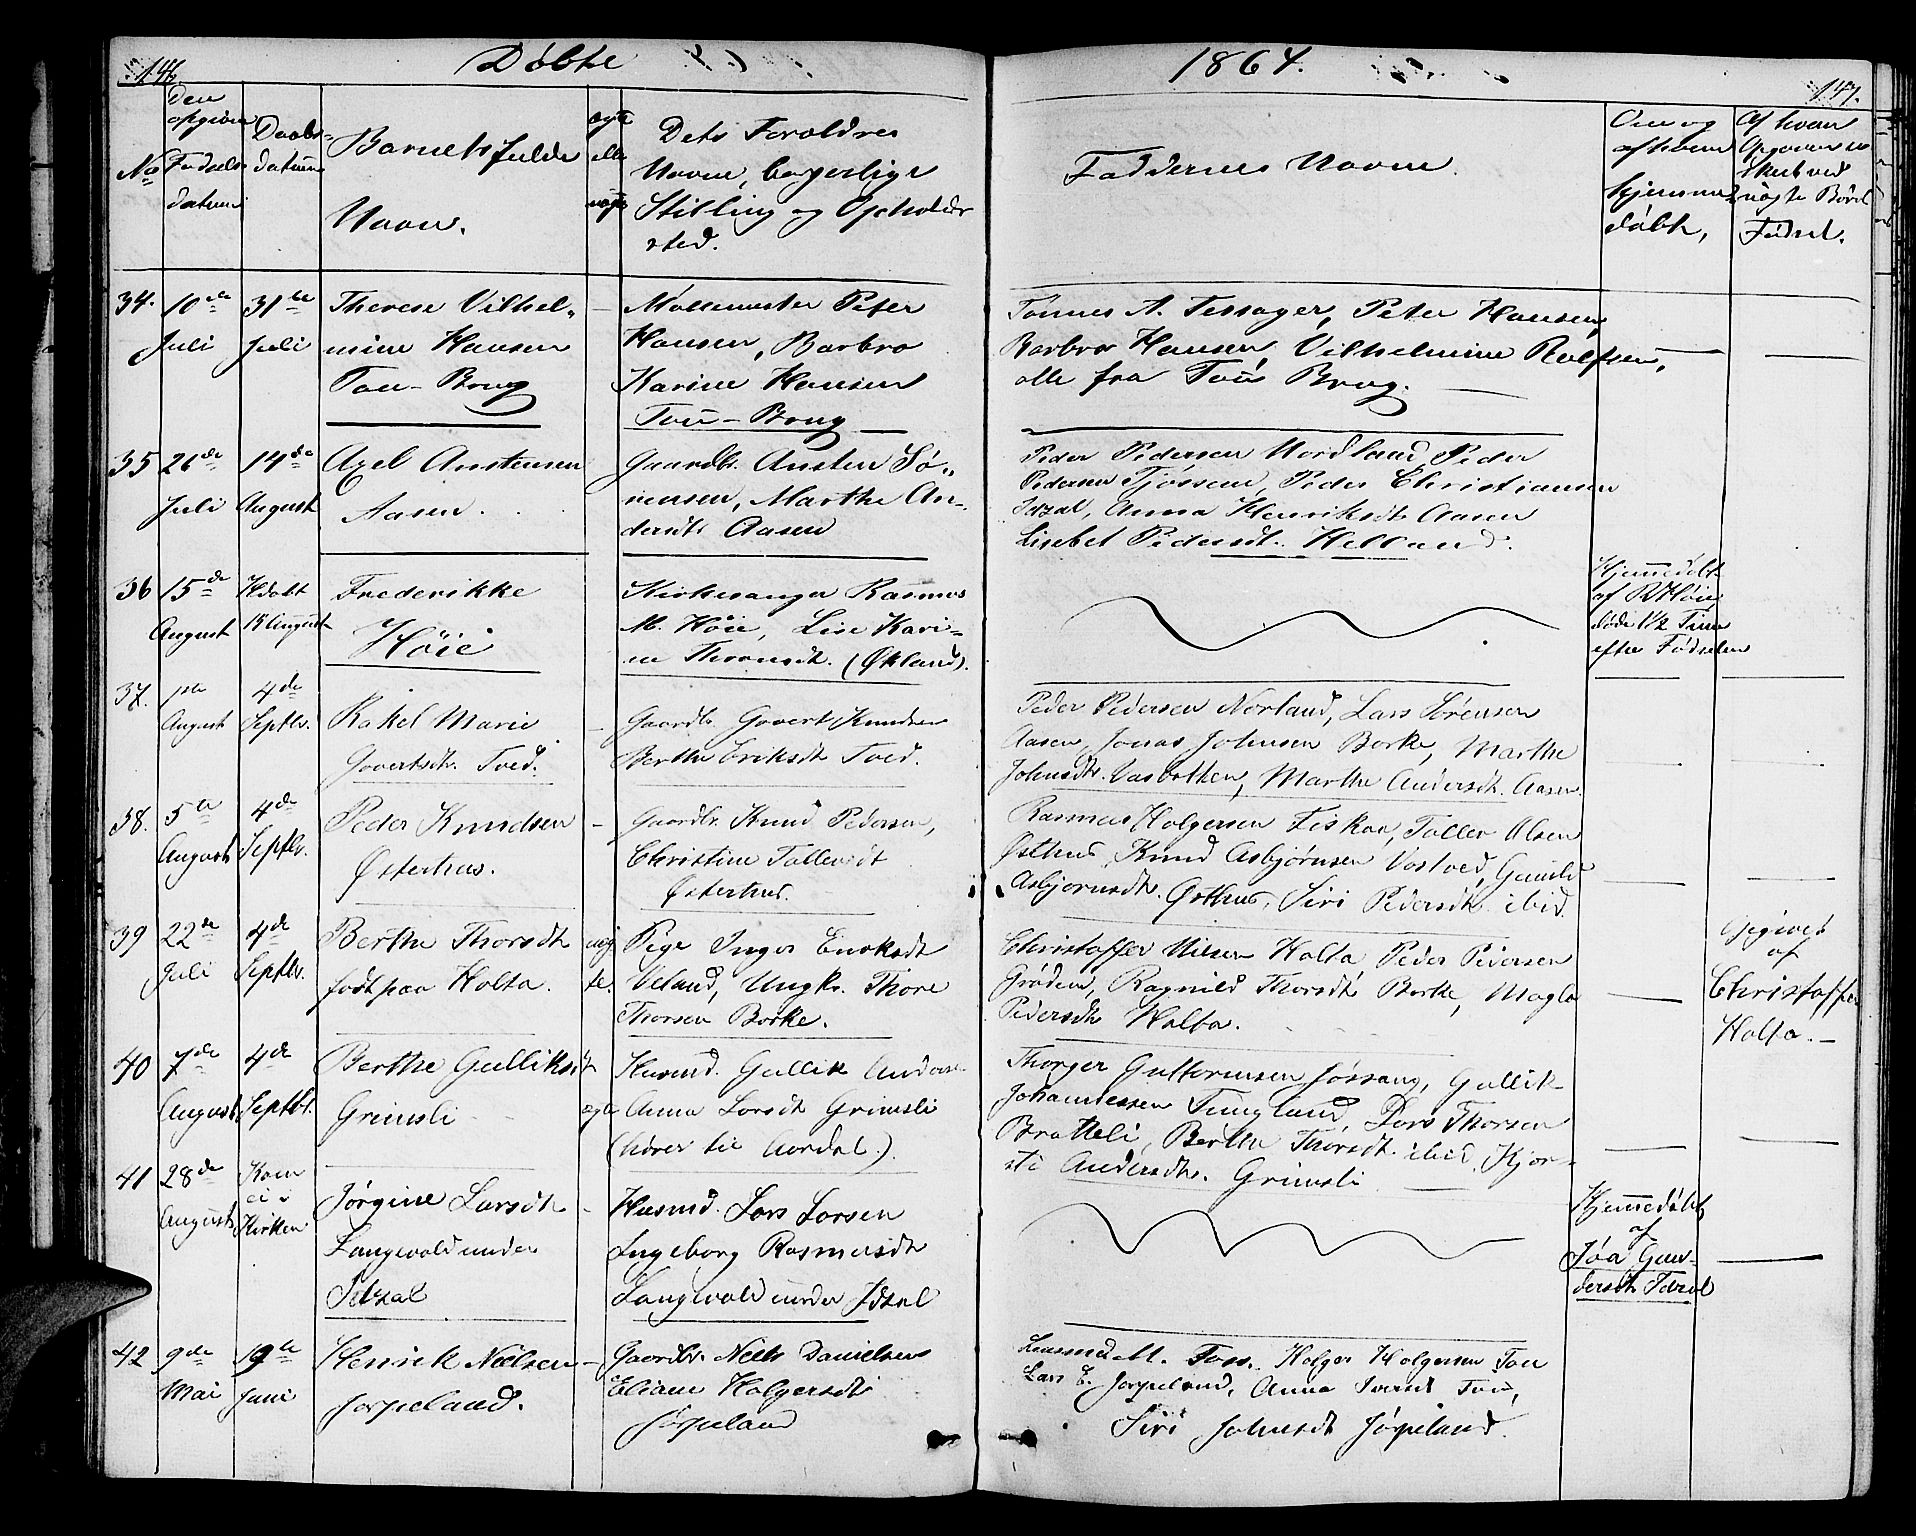 146.
Døbte
1864.
147.
No
den opgivne Fødselsdatum
Daabsdatum
Barnets fulde Navn.
ægte eller uægte
Dets Forældres
Navne, borgerlige
Stilling og Opholds-
sted.
Faddernes Navne.
Om og
af hvem
hjemme-
døbt,
Af hvem
Opgivelsen
skeet ved
uægte Børns
Fødsel.
34. 10de Juli
31te Juli
Therese Vilhel-
mine Hansen
Tou-Brug
—
Møllemester Peter
Hansen, Barbro
Karine Hansen
Tou-Brug
Tønnes A. Tessager, Peter Hansen,
Barbro Hansen, Vilhelmine Rolfsen,
alle fra Tous Brug.
35 26de Juli
14de August
Axel Austensen
Aasen.
Gaardbr. Austen Sø-
rensen, Marthe An-
dersdtr Aasen
Peder Pedersen Nordland Peder
Pedersen Tjøssem, Peder Christiansen
Idzal, Anna Henriksdtr Aasen
Lisebet Pedersdt. Helland.
36 15de August
Hdøbt
15 August
Frederikke
Høie
Kirkesanger Rasmus
M. Høie, Lise Kari-
ne Thomsdt. (Økland).
Hjemmedøbt
af R Høie
døde 1/2 Time
efter Fødselen
37. 1ste August
4de Septbr.
Rakel Marie
Govertsdtr. Tved.
—
Gaardbr. Govert Knudsen
Berthe Eriksdt Tved.
Peder Pedersen Norland, Lars Sørensen
Aasen, Jonas Johnsen Borke, Marthe
Johnsdtr. Vasbotten, Marthe Andersdt. Aasen.
38. 5te August
4de Septbr.
Peder Knudsen
Østerhus.
—
Gaardbr. Knud Pedersen,
Christine Tollevsdt
Østerhus.
Rasmus Holgersen Fiskaa, Tollev Olsen
Østhus, Knud Asbjørnsen Vostved, Gunild
Asbjørnsdtr. Østhus, Siri Pedersdtr. ibid.
39 22de Juli
4de Septbr.
Berthe Thorsdtr
født paa Holta.
uæg
te.
Pige Inger Eriksdt
Veland, Ungk. Thore
Thorsen Borke.
Christoffer Nilsen Holta Peder Pedersen
Grødem, Ragnild Thorsdt Borke, Magla
Pedersdtr Holta.
Opgivet
af
Christoffer
Holta.
40 7de August
4de Septbr.
Berthe Gulliksdt
Grimsli
ægte
Husmd. Gullik Anders.
Anna Larsdt Grimsli
(hører til Aardal.)
Thorger Guttormsen Jøssang, Gullik
Johannessen Tungland, Lars Thorsen
Bratteli, Berthe Thorsdt. ibid, Kjer-
sti Andersdtr. Grimsli
41 28de August
Kom
ei i
Kirken
Jørgine Larsdtr
Langvold under
Idzal
—
Husmd. Lars Larsen
Ingeborg Rasmusdt
Langvold under Idzal
Hjemmedøbt
af
Joa Gun-
dersdt Idzal
42 9de Mai
19de Juni
Henrik Nielsen
Jørpeland.
—
Gaardbr. Niels Danielsen
Eliane Holgersdt
Jørpeland
Lensmd M. Tou. Holger Holgersen Tou
Lars E. Jørpeland, Anna Iversdt Tou,
Siri Johnsdt Jørpeland.